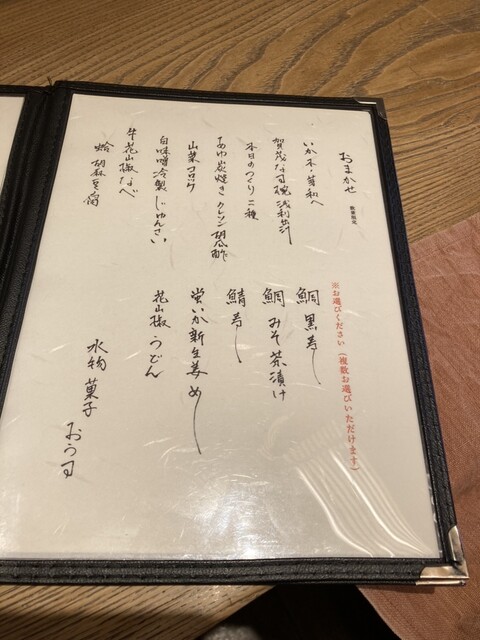 おまかせ
いか木ノ芽和へ
賀茂なす椀 浅利出汁
本日のつくり 二種
あゆ炭焼き クレソン 胡瓜酢
山菜コロッケ
白味噌冷製じゅんさい
牛花山椒なべ
蛤 胡麻豆腐
※お選びください（複数お選びいただけます）
鯛 黒寿し
鯛 みそ茶漬け
鯖寿し
蛍いか新生姜めし
花山椒うどん
水物 菓子 おうす